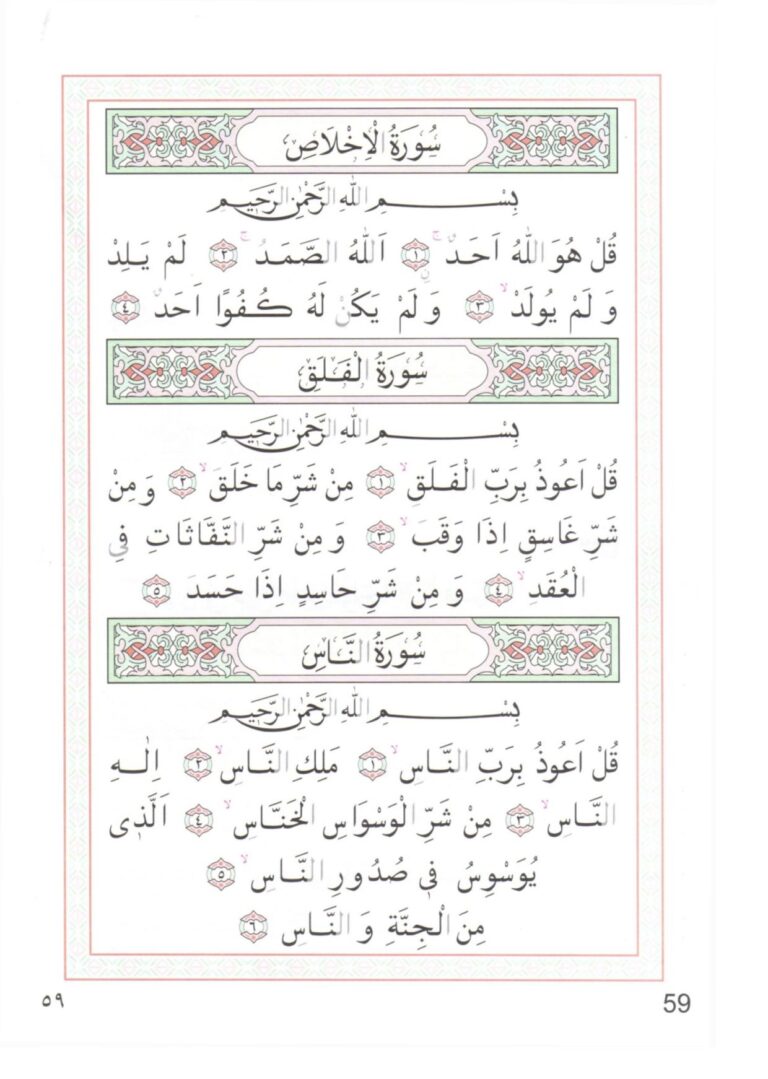 سُورَةُ الْاِخْلَاصِ
بِسْمِ اللهِ الرَّحْمٰنِ الرَّحٖيمِ
قُلْ هُوَ اللهُ اَحَدٌ ۚ ﴿١﴾ اَللهُ الصَّمَدُ ۚ ﴿٢﴾ لَمْ يَلِدْ
وَلَمْ يُولَدْ ۙ ﴿٣﴾ وَلَمْ يَكُنْ لَهُ كُفُوًا اَحَدٌ ﴿٤﴾
سُورَةُ الْفَلَقِ
بِسْمِ اللهِ الرَّحْمٰنِ الرَّحٖيمِ
قُلْ اَعُوذُ بِرَبِّ الْفَلَقِ ۙ ﴿١﴾ مِنْ شَرِّ مَا خَلَقَ ۙ ﴿٢﴾ وَمِنْ
شَرِّ غَاسِقٍ اِذَا وَقَبَ ۙ ﴿٣﴾ وَمِنْ شَرِّ النَّفَّاثَاتِ فِي
الْعُقَدِ ۙ ﴿٤﴾ وَمِنْ شَرِّ حَاسِدٍ اِذَا حَسَدَ ﴿٥﴾
سُورَةُ النَّاسِ
بِسْمِ اللهِ الرَّحْمٰنِ الرَّحٖيمِ
قُلْ اَعُوذُ بِرَبِّ النَّاسِ ۙ ﴿١﴾ مَلِكِ النَّاسِ ۙ ﴿٢﴾ اِلٰهِ
النَّاسِ ۙ ﴿٣﴾ مِنْ شَرِّ الْوَسْوَاسِ الْخَنَّاسِ ۙ ﴿٤﴾ اَلَّذٖى
يُوَسْوِسُ فٖى صُدُورِ النَّاسِ ۙ ﴿٥﴾
مِنَ الْجِنَّةِ وَ النَّاسِ ﴿٦﴾
٥٩ 59